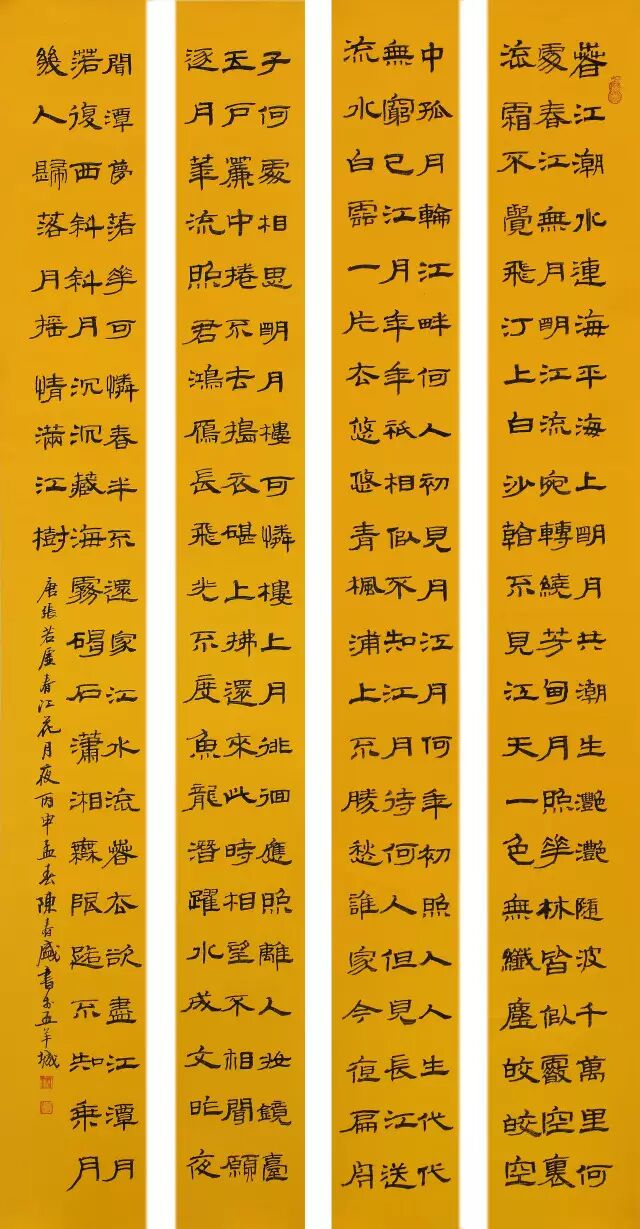 春江潮水連海平海上明月共潮生灩灩隨波千萬里何
處春江無月明江流宛轉繞芳甸月照華林皆似霰空裏
流霜不覺飛汀上白沙看不見江天一色無纖塵皎皎空
中孤月輪江畔何人初見月江月何年初照人人生代代
無窮已江月年年祇相似不知江月待何人但見長江送
流水白雲一片去悠悠青楓浦上不勝愁誰家今夜扁舟
子何處相思明月樓可憐樓上月徘徊應照離人妝鏡臺
玉戶簾中捲不去搗衣碪上拂還來此時相望不相聞願
逐月華流照君鴻鴈長飛光不度魚龍潛躍水成文昨夜
閒潭夢落華可憐春半不還家江水流春去欲盡江潭月
落復西斜斜月沉沉藏海霧碣石瀟湘無限路不知乘月
幾人歸落月搖情滿江樹
唐張若虛春江花月夜丙申孟春陳春盛書於五羊城